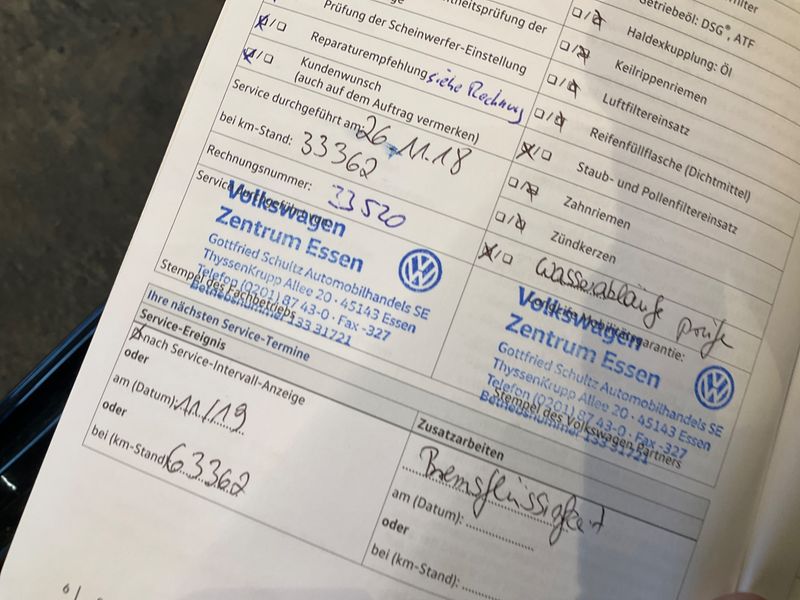 Prüfung der Scheinwerfer-Einstellung
Reparaturempfehlung siehe Rechnung
Kundenwunsch
(auch auf dem Auftrag vermerken)
Service durchgeführt am: 26.11.18
bei km-Stand: 33362
Rechnungsnummer: 33520
Volkswagen
Zentrum Essen
Gottfried Schultz Automobilhandels SE
ThyssenKrupp Allee 20 · 45143 Essen
Telefon (0201) 87 43-0 · Fax -327
Betriebsnummer 133 31721
Stempel des Fachbetriebs
Getriebeöl: DSG®, ATF
Haldexkupplung: Öl
Keilrippenriemen
Luftfiltereinsatz
Reifenfüllflasche (Dichtmittel)
Staub- und Pollenfiltereinsatz
Zahnriemen
Zündkerzen
Wasserabläufe
Volkswagen
Zentrum Essen
Gottfried Schultz Automobilhandels SE
ThyssenKrupp Allee 20 · 45143 Essen
Telefon (0201) 87 43-0 · Fax -327
Betriebsnummer 133 31721
Stempel des Volkswagen Partners
Ihre nächsten Service-Termine
Service-Ereignis
nach Service-Intervall-Anzeige
oder
am (Datum): 11/19
oder
bei (km-Stand): 63362
Zusatzarbeiten
Bremsflüssigkeit
am (Datum):
oder
bei (km-Stand):
6